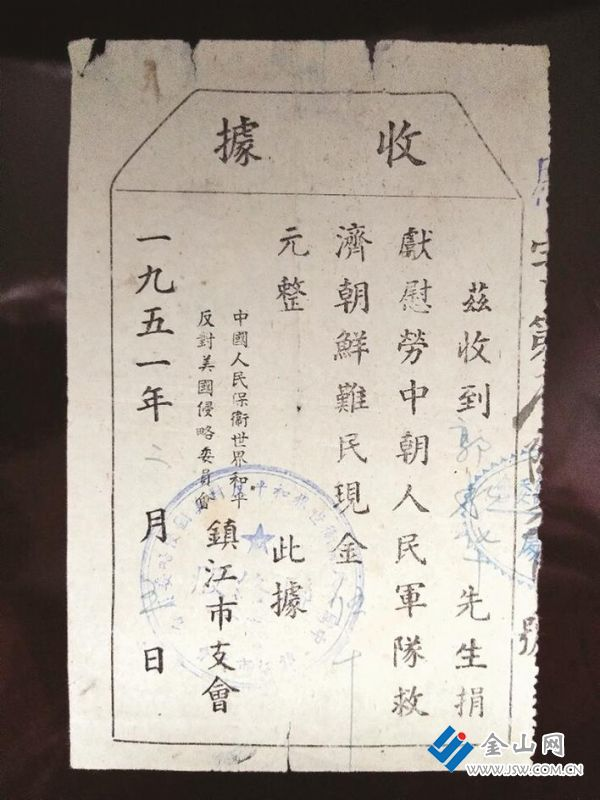 收據
茲收到郭先生捐
獻慰勞中朝人民軍隊救
濟朝鮮難民現金
元整 此據
中國人民保衛世界和平
反對美國侵略委員會
鎮江市支會
一九五一年二月日
字第號
金山网
WWW.JSW.COM.CN